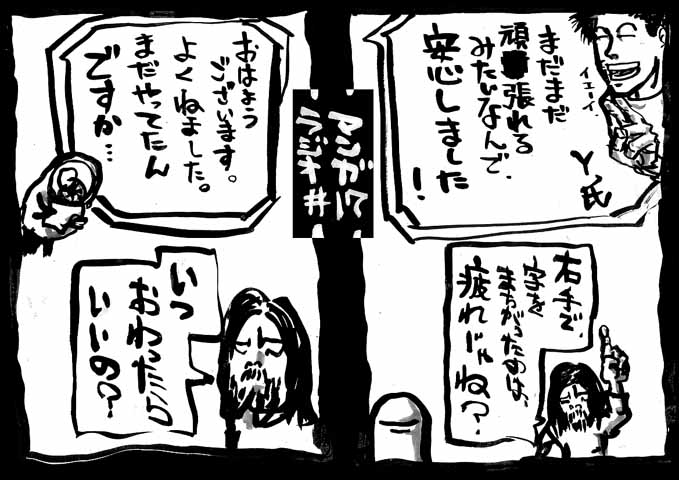 まだまだ
頑張れる
みたいなんで、
安心しました
！
イエーイ
Y氏
右手で、
字を
まちがうたのは、
疲れじゃね？
マンガにて
ラジオ#
おはよう
ございます。
よくねました。
まだやってたん
ですか…
いつ
おわったら
いいの？